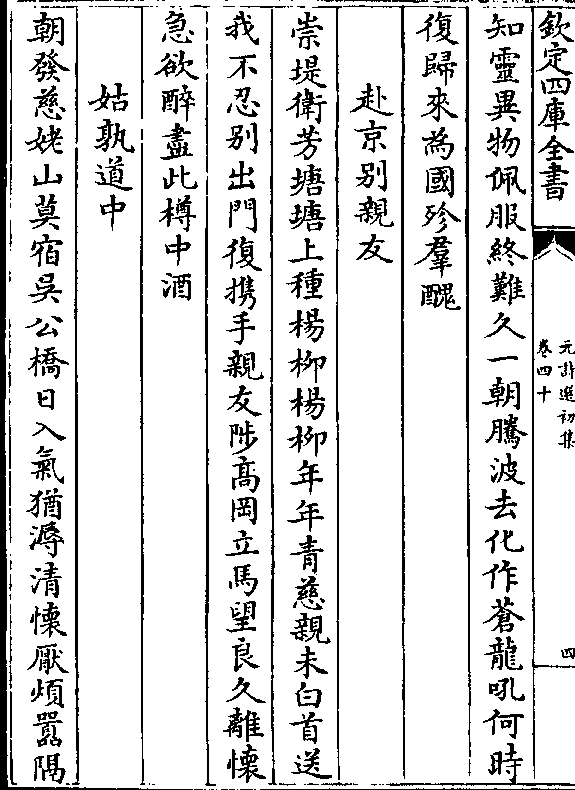 欽定四庫全書
元詩選初集
卷四十
四
知靈異物佩服終難久一朝騰波去化作蒼龍吼何時
復歸來為國殄羣醜
赴京别親友
崇堤衛芳塘塘上種楊柳楊柳年年青慈親未白首送
我不忍别出門復携手親友陟高岡立馬望良久離懷
急欲醉盡此樽中酒
姑孰道中
朝發慈姥山莫宿吳公橋日入氣猶溽清懷厭煩囂隔